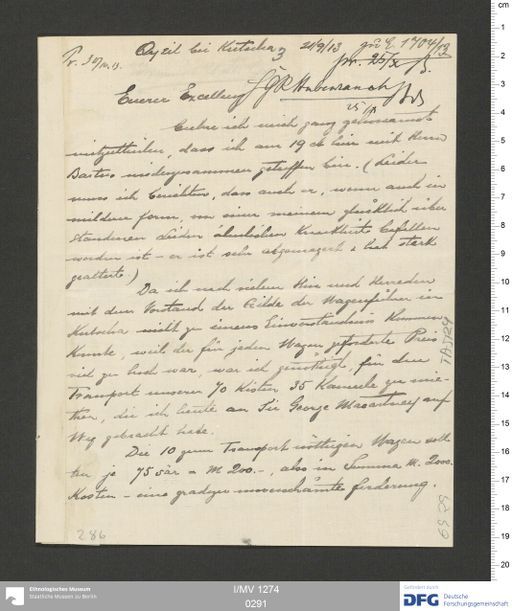 Pr. 30/10.13.
Qyzil bei Kutscha 21/9/13
zu E. 1704/13
pr. 25/X
Euerer Excellenz
25/X
beehre ich mich ganz gehorsamst
mitzutheilen, dass ich am 19 d. hier mit Herrn
Bartus wiederzusammen getroffen bin. (Leider
muss ich berichten, dass auch er, wenn auch in
milderer form, von einer meinem glücklich über
standenen Leiden ähnlichen Krankheit befallen
worden ist – er ist sehr abgemagert & hat stark
gealtert.)
Da ich nach vielem Hin und Herreden
mit dem Vorstand der Gilde der Wagenführer in
Kutscha nicht zu einem Einverständniss kommen
konnte, weil der für jeden Wagen geforderte Preis
viel zu hoch war, war ich genötigt, für den
Transport unserer 70 Kisten 35 Kameele zu mie-
then, die ich heute an Sir George Macartney auf
Weg gebracht habe.
Die 10 zum Transport nöthigen Wagen soll
ten je 75 sär = M 200.-, also in Summa M. 2000.
Kosten – eine gradezu unverschämte forderung.
TA 5124
6529
286
cm
1
2
3
4
5
6
7
8
9
10
11
12
13
14
15
16
17
18
19
20
Ethnologisches Museum
Staatliche Museen zu Berlin
I/MV 1274
0291
Gefördert durch
DFG Deutsche
Forschungsgemeinschaft